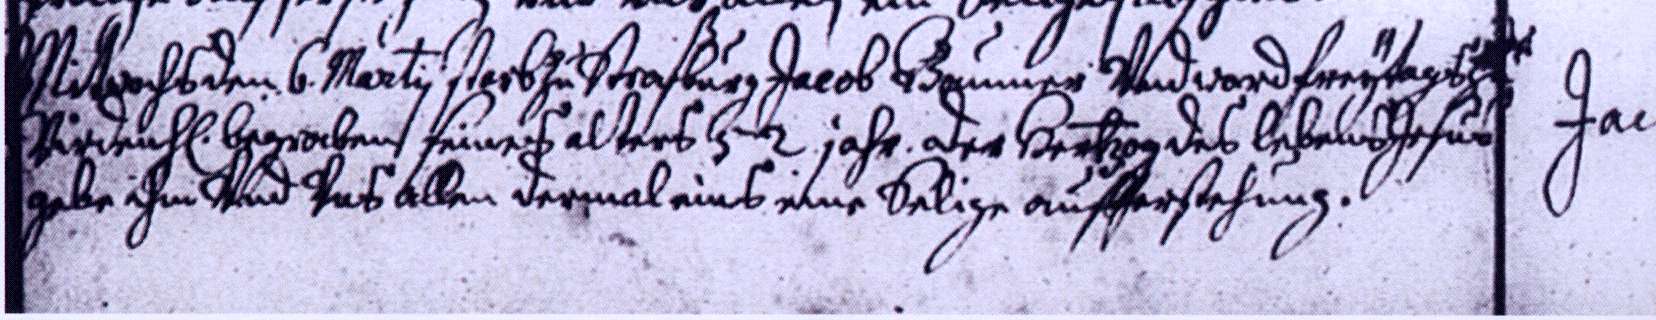 Mittwochs den 6. Martij starb zu Straßburg Jacob Bammer Vnd ward freytags zu
begraben seines alters 32 jahr. der Hertzog des lebens Jesus
gebe ihm Vnd Vns allen dermal eins eine Selige aufferstehung.
Jac